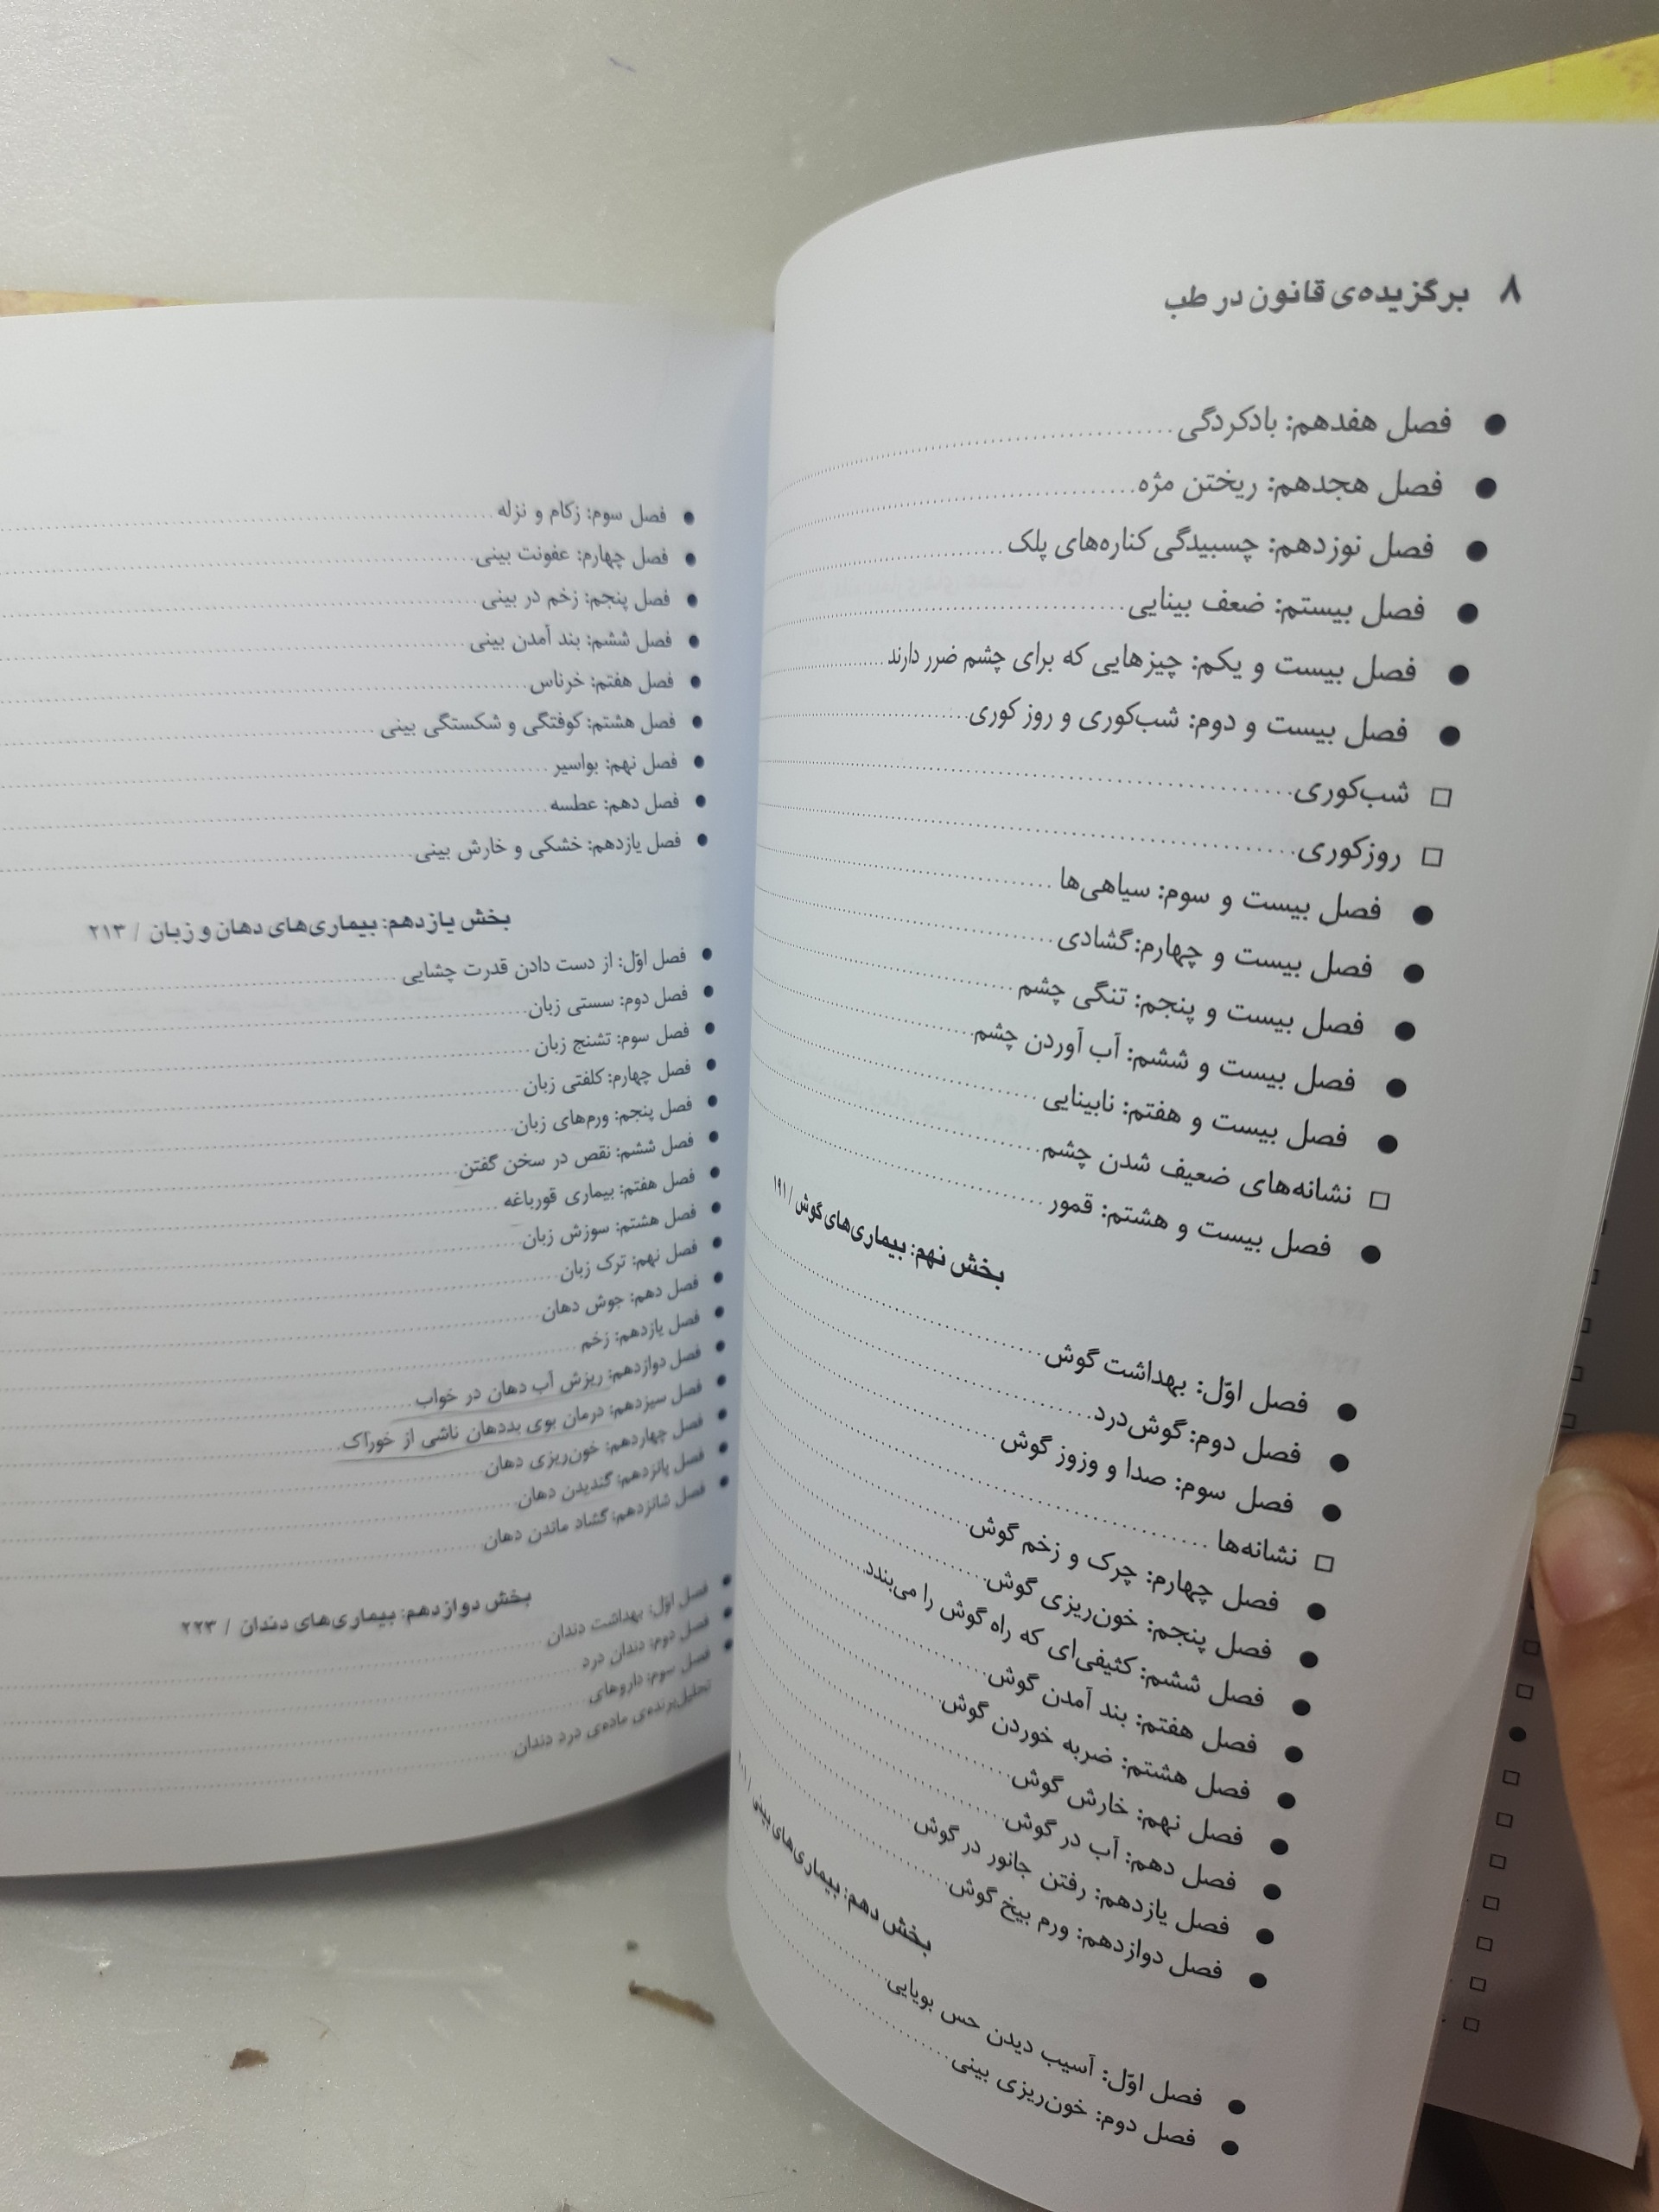 ۸ برگزیده‌ی قانون در طب
● فصل هفدهم: بادکردگی
● فصل هجدهم: ریختن مژه
● فصل نوزدهم: چسبیدگی کناره‌های پلک
● فصل بیستم: ضعف بینایی
● فصل بیست و یکم: چیزهایی که برای چشم ضرر دارند
● فصل بیست و دوم: شب‌کوری و روز کوری
□ شب‌کوری
□ روزکوری
● فصل بیست و سوم: سیاهی‌ها
● فصل بیست و چهارم: گشادی
● فصل بیست و پنجم: تنگی چشم
● فصل بیست و ششم: آب آوردن چشم
● فصل بیست و هفتم: نابینایی
□ نشانه‌های ضعیف شدن چشم
● فصل بیست و هشتم: قمور
بخش نهم: بیماری‌های گوش / ۱۹۱
● فصل اوّل: بهداشت گوش
● فصل دوم: گوش‌درد
● فصل سوم: صدا و وزوز گوش
□ نشانه‌ها
● فصل چهارم: چرک و زخم گوش
● فصل پنجم: خون‌ریزی گوش
● فصل ششم: کثیفی‌ای که راه گوش را می‌بندد
● فصل هفتم: بند آمدن گوش
● فصل هشتم: ضربه خوردن گوش
● فصل نهم: خارش گوش
● فصل دهم: آب در گوش
● فصل یازدهم: رفتن جانور در گوش
● فصل دوازدهم: ورم بیخ گوش
بخش دهم: بیماری‌های بینی /
● فصل اوّل: آسیب دیدن حس بویایی
● فصل دوم: خون‌ریزی بینی
● فصل سوم: زکام و نزله
● فصل چهارم: عفونت بینی
● فصل پنجم: زخم در بینی
● فصل ششم: بند آمدن بینی
● فصل هفتم: خرناس
● فصل هشتم: کوفتگی و شکستگی بینی
● فصل نهم: بواسیر
● فصل دهم: عطسه
● فصل یازدهم: خشکی و خارش بینی
بخش یازدهم: بیماری‌های دهان و زبان / ۲۱۳
● فصل اوّل: از دست دادن قدرت چشایی
● فصل دوم: سستی زبان
● فصل سوم: تشنج زبان
● فصل چهارم: کلفتی زبان
● فصل پنجم: ورم‌های زبان
● فصل ششم: نقص در سخن گفتن
● فصل هفتم: بیماری قورباغه
● فصل هشتم: سوزش زبان
● فصل نهم: ترک زبان
● فصل دهم: جوش دهان
● فصل یازدهم: زخم
● فصل دوازدهم: ریزش آب دهان در خواب
● فصل سیزدهم: درمان بوی بددهان ناشی از خوراک
● فصل چهاردهم: خون‌ریزی دهان
● فصل پانزدهم: گندیدن دهان
● فصل شانزدهم: گشاد ماندن دهان
بخش دوازدهم: بیماری‌های دندان / ۲۲۳
● فصل اوّل: بهداشت دندان
● فصل دوم: دندان درد
● فصل سوم: داروهای
تحلیل‌برنده‌ی ماده‌ی درد دندان